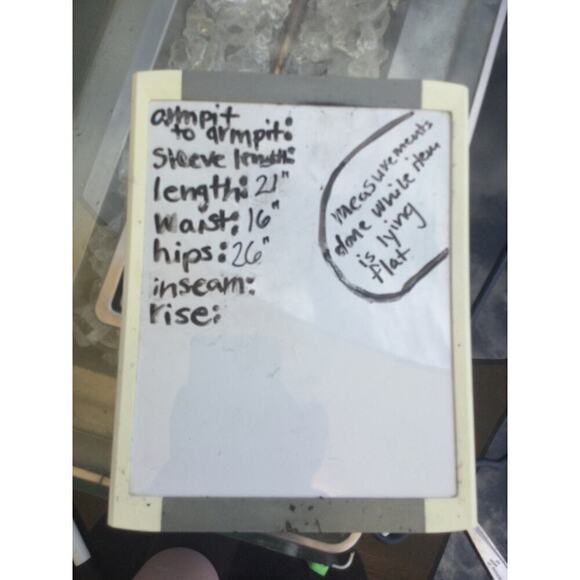 armpit
to armpit:
Sleeve length:
length: 21"
Waist: 16"
hips: 26"
inseam:
rise:
measurements
done while item
is lying
flat